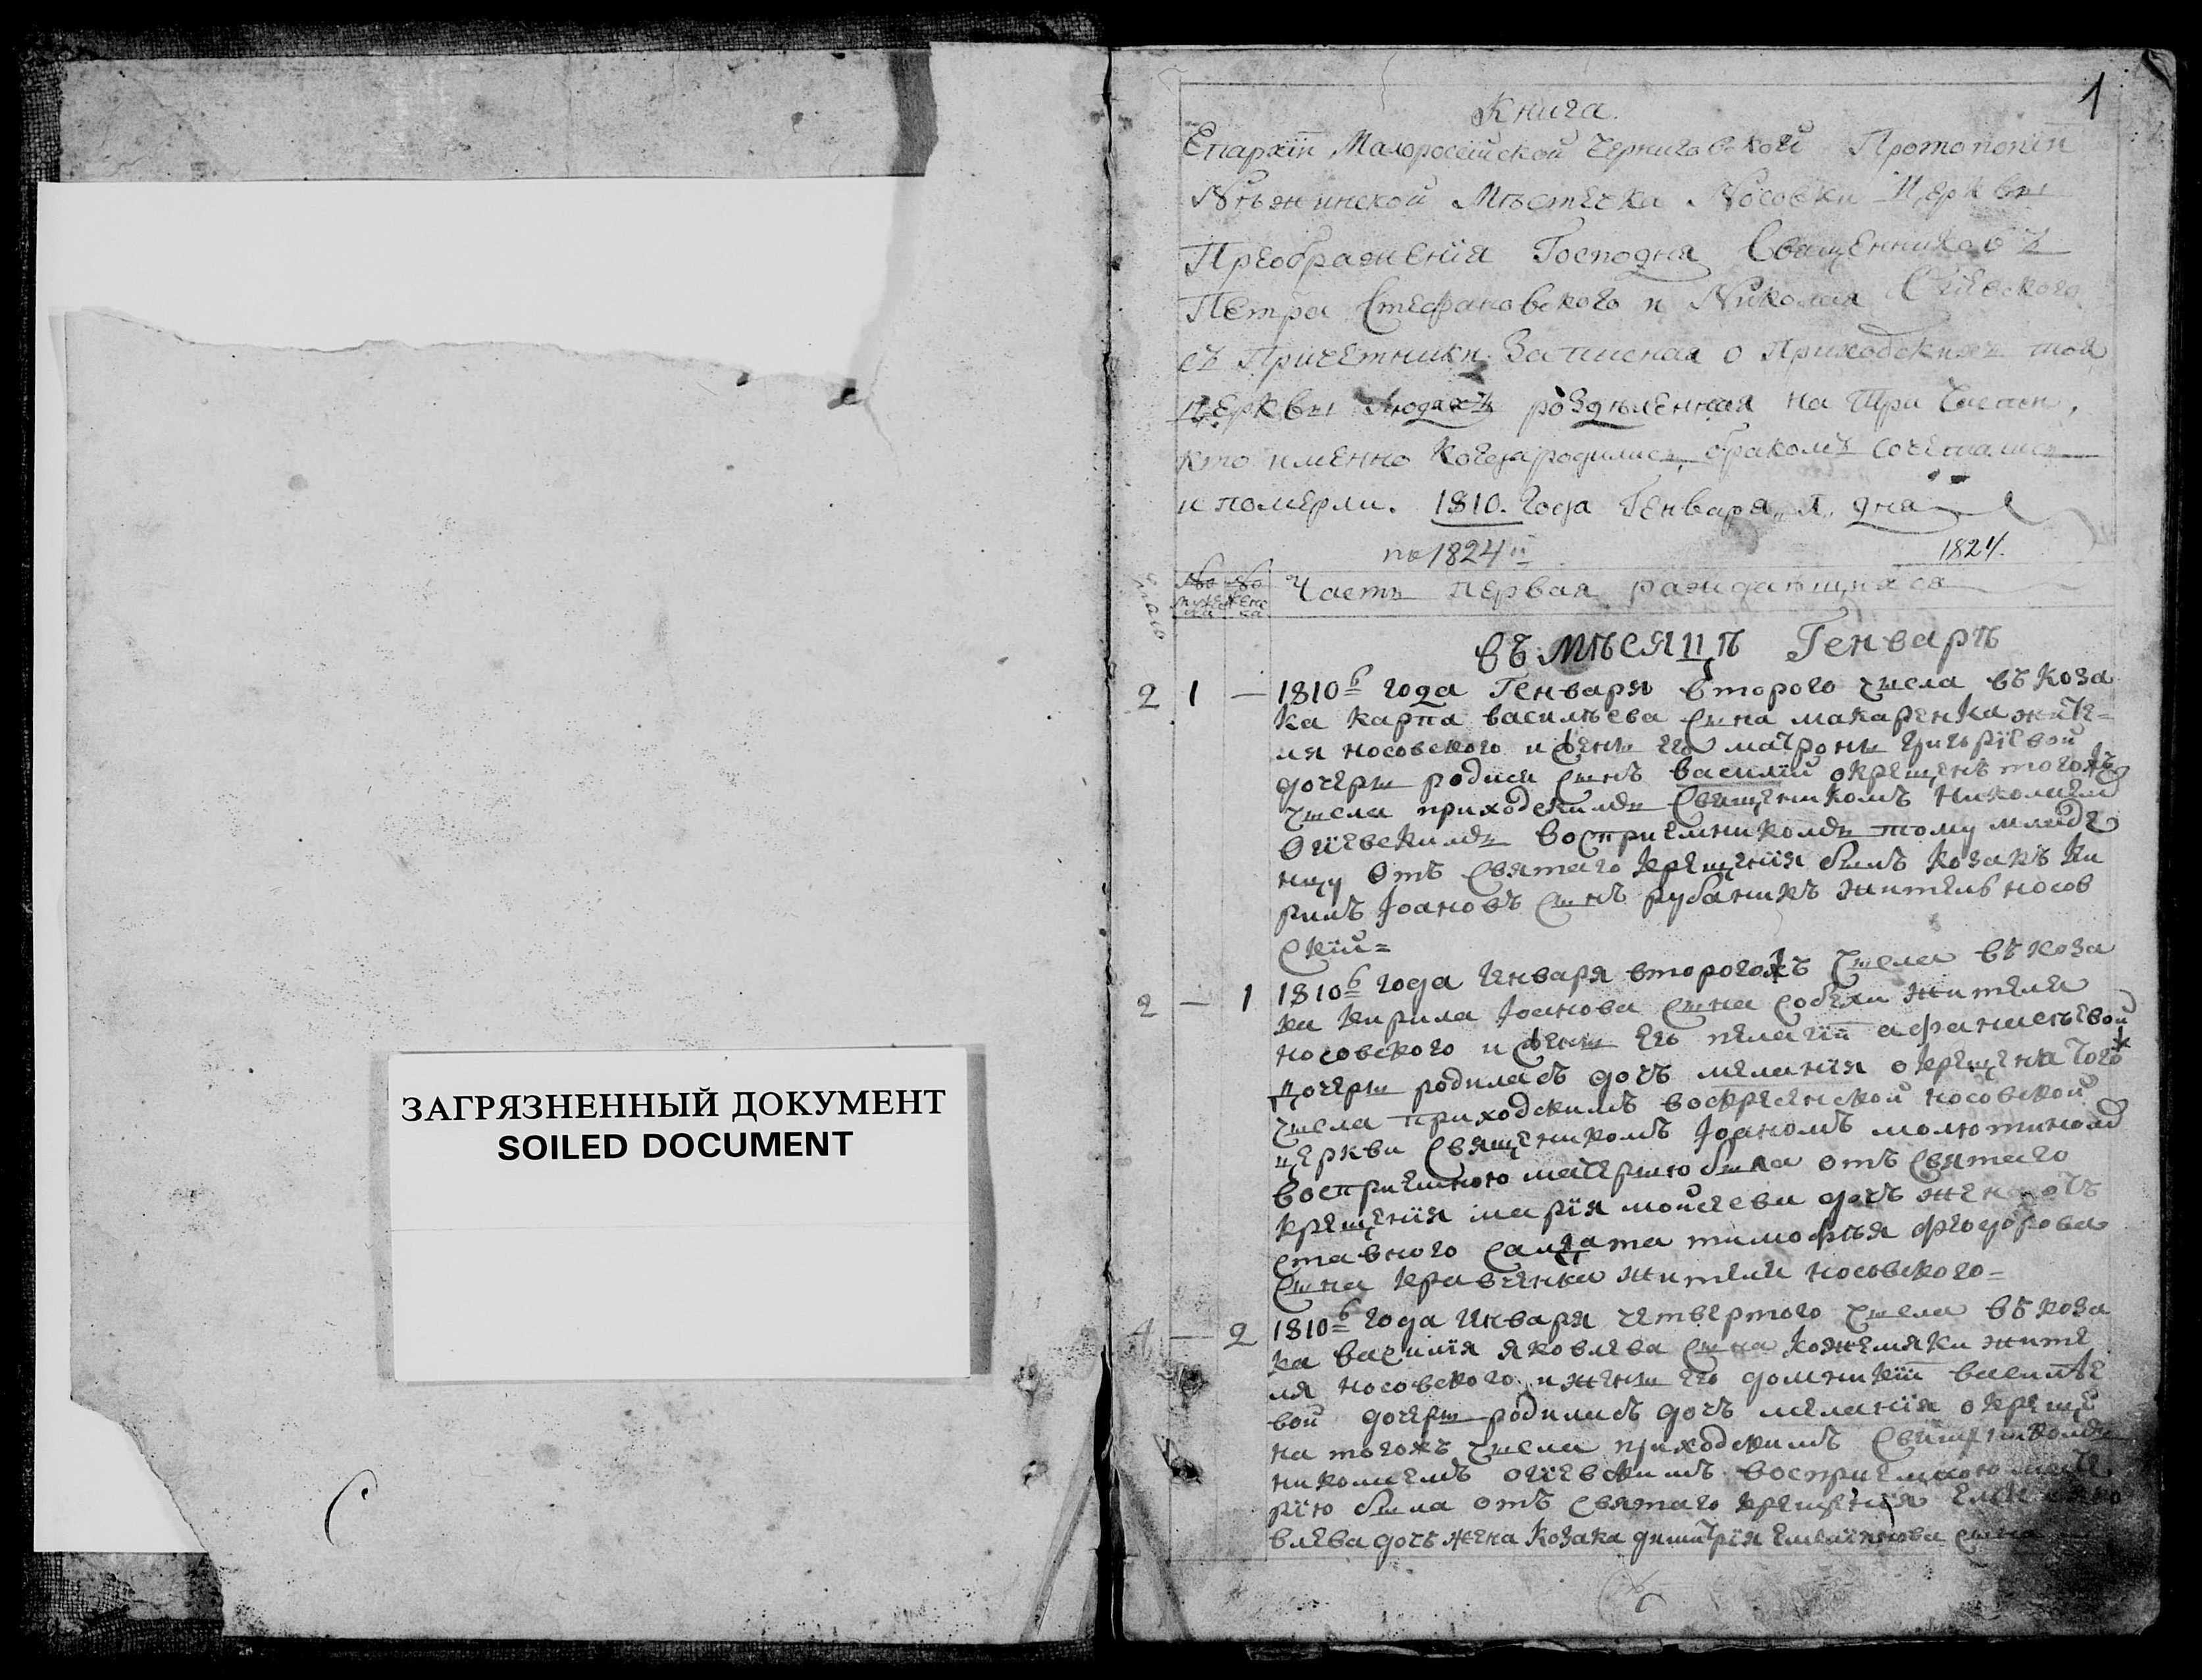 ЗАГРЯЗНЕННЫЙ ДОКУМЕНТ
SOILED DOCUMENT
1
Книга
Епархїи Малоросейской Черниговской Протопопїи
Нѣжинской Мѣстечка Носовки Церкви
Преображенїя Господня Священниковъ
Петра Стефановского и Николая Огїевского
съ Причетники Записная о приходскихъ той
церкви людахъ роздѣленная на три части,
кто именно когда родились, бракомъ сочетались
и померли. 1810. года Генваря 1. дня
по 1824 1824.
число № мужеска № женска Часть первая раждающихся
въ мѣсяцѣ Генварѣ
2 1 — 1810г года Генваря второго числа въ коза
ка карпа васильева сына макаренка жите=
ля носовского и жены его матроны григорїевой
дочеры родися сынъ василїй окрещенъ тогожъ
числа приходскимъ священикомъ николаем
огїевскимъ восприемникомъ тому младе
нцу отъ святаго крещенїя былъ козакъ ки
рилъ Іоановъ сынъ рубаникъ житель носов
скїй=
2 — 1 1810г года Января второгожъ числа въ коза
ка кирила Іоанова сына жителя
носовского и жены его пелагїи афанасьевой
дочеры родиласъ дочъ меланїя окрещена того*
числа приходскимъ воскресенской носовской
церкви священикомъ Іоаномъ молютином
восприемною материю была отъ святаго
крещенїя марїя мойсеева дочъ жена отъ
ставного салдата тимофѣя феодорова
сына кравченка жителя носовского=
4 — 2 1810г года Января четвертого числа въ коза
ка василїя яковлева сына кожемяки жите
ля носовского и жены его доминикїи василѣе
вой дочеры родиласъ дочъ меланїя окреще
на тогожъ числа приходскимъ священикомъ
николаемъ огїевскимъ восприемною мате
рїю была отъ святаго крещенїя
влева дочъ жена козака димитрїя емелїянова сына